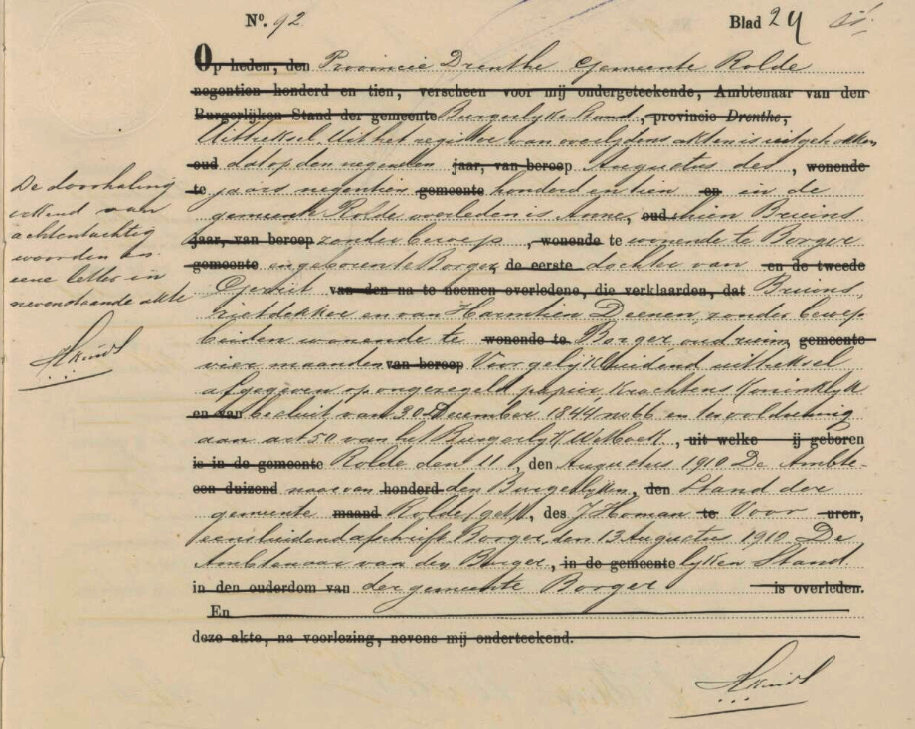 Nº. 92. Blad 24
Op heden, den Provincie Drenthe Gemeente Rolde
negentien honderd en tien, verscheen voor mij ondergeteekende, Ambtenaar van den
Burgerlijken Stand der gemeente Burgerlyke Stand, provincie Drenthe,
Uittreksel Uit het register van overlijdens akten is
oud dat op den negenden jaar, van beroep Augustus des, wonende
te jaars negentien gemeente honderd en tien en in de
gemeente Rolde overleden is Anne, oud chien Bruins
jaar, van beroep zonder beroep, wonende te wonende te Borger
gemeente en geboren te Borger, de eerste dochter van en de tweede
Gerrit van den na te noemen overledene, die verklaarden, dat Bruins,
rietdekker en van Harmtien Deenen, zonder beroep
beiden wonende te wonende te Borger oud ruim gemeente
vier maanden van beroep Voor gelijkluidend uittreksel
afgegeven op ongezegeld papier, krachtens Koninklijk
en van besluit van 30 December 1844 no 66 en ter voldoening
aan art 50 van het Burgerlyk Wetboek, uit welke ij geboren
is in de gemeente Rolde den 11, den Augustus 1910 De Ambte-
een duizend naar van honderd den Burgerlyken, den Stand der
gemeente maand Rolde /get/, des J Homan te Voor uren,
eensluidend afschrift Borger, den 13 Augustus 1910 De
Ambtenaar van den Burger, in de gemeente lyken Stand
in den ouderdom van der gemeente Borger is overleden.
En
deze akte, na voorlezing, nevens mij onderteekend.
De doorhaling
erkend van
achtentachtig
woorden en
eene letter in
nevenstaande akte